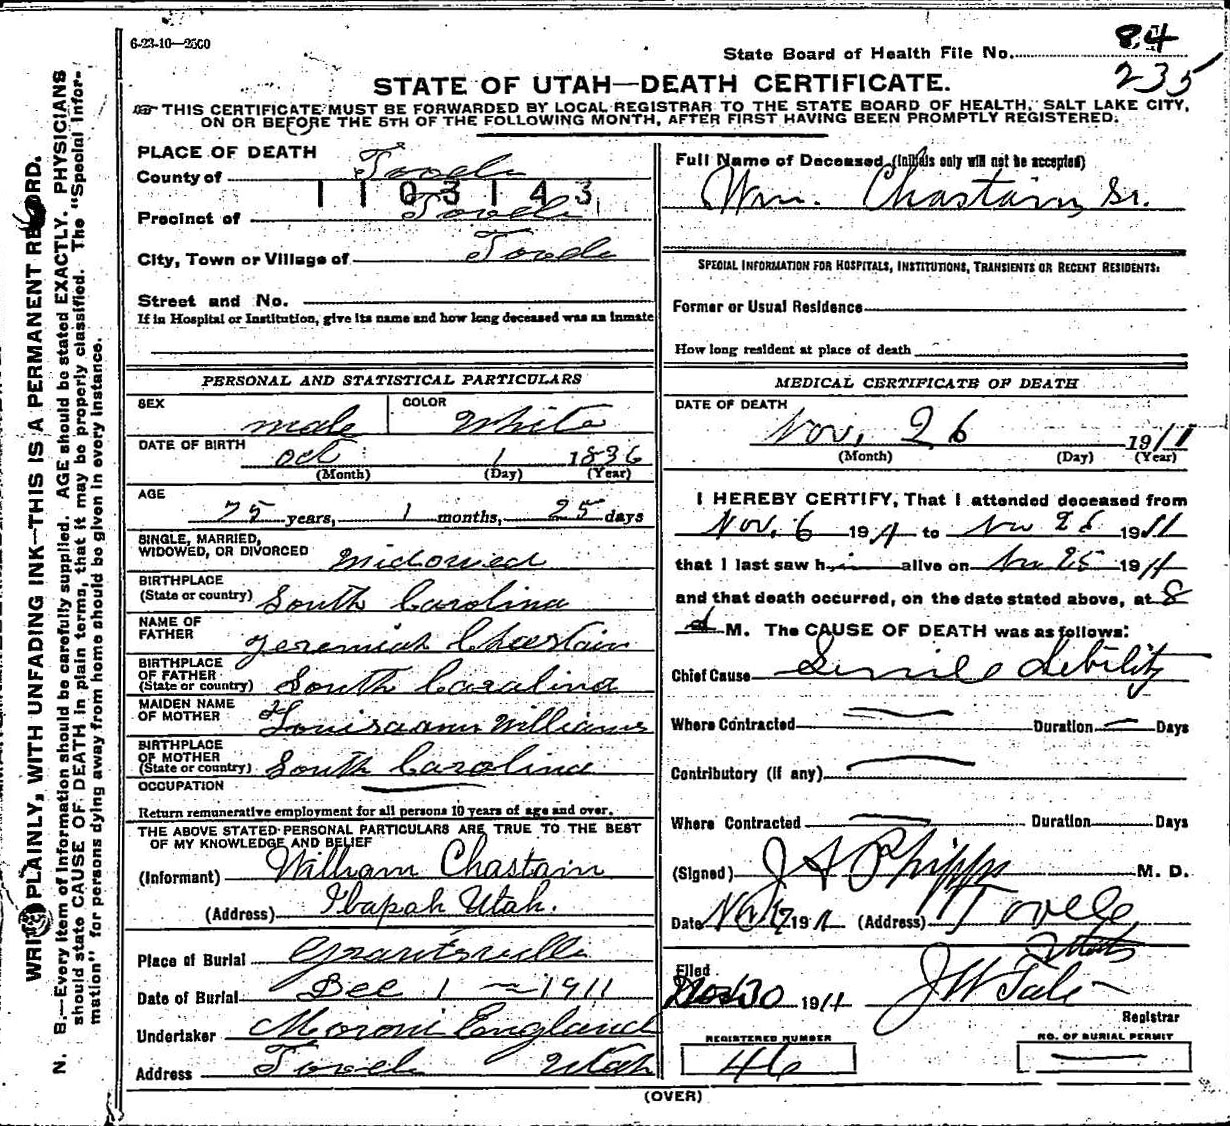 6-23-10—2500
State Board of Health File No. 84
235
STATE OF UTAH—DEATH CERTIFICATE.
THIS CERTIFICATE MUST BE FORWARDED BY LOCAL REGISTRAR TO THE STATE BOARD OF HEALTH, SALT LAKE CITY,
ON OR BEFORE THE 5TH OF THE FOLLOWING MONTH, AFTER FIRST HAVING BEEN PROMPTLY REGISTERED.
WRITE PLAINLY, WITH UNFADING INK—THIS IS A PERMANENT RECORD.
N. B.—Every item of information should be carefully supplied. AGE should be stated EXACTLY. PHYSICIANS
should state CAUSE OF DEATH in plain terms, that it may be properly classified. The "Special Infor-
mation" for persons dying away from home should be given in every instance.
PLACE OF DEATH
County of Tooele
1103143
Precinct of Tooele
City, Town or Village of Tooele
Street and No.
If in Hospital or Institution, give its name and how long deceased was an inmate
PERSONAL AND STATISTICAL PARTICULARS
SEX male COLOR White
DATE OF BIRTH Oct 1 1836
(Month) (Day) (Year)
AGE
75 years, 1 months, 25 days
SINGLE, MARRIED,
WIDOWED, OR DIVORCED Widowed
BIRTHPLACE
(State or country) South Carolina
NAME OF
FATHER Jeremiah Chastain
BIRTHPLACE
OF FATHER
(State or country) South Carolina
MAIDEN NAME
OF MOTHER Louisaann Williams
BIRTHPLACE
OF MOTHER
(State or country) South Carolina
OCCUPATION
Return remunerative employment for all persons 10 years of age and over.
THE ABOVE STATED PERSONAL PARTICULARS ARE TRUE TO THE BEST
OF MY KNOWLEDGE AND BELIEF
(Informant) William Chastain
(Address) Ibapah Utah.
Place of Burial Grantsville
Date of Burial Dec 1 — 1911
Undertaker Moroni England
Address Tooele Utah
Full Name of Deceased (Initials only will not be accepted)
Wm. Chastain, Sr.
SPECIAL INFORMATION FOR HOSPITALS, INSTITUTIONS, TRANSIENTS OR RECENT RESIDENTS:
Former or Usual Residence
How long resident at place of death
MEDICAL CERTIFICATE OF DEATH
DATE OF DEATH
Nov. 26 1911
(Month) (Day) (Year)
I HEREBY CERTIFY, That I attended deceased from
Nov. 6 1911 to Nov 26 1911
that I last saw him alive on Nov 25 1911
and that death occurred, on the date stated above, at 8
M. The CAUSE OF DEATH was as follows:
Chief Cause Senile debility
Where Contracted — Duration — Days
Contributory (if any) —
Where Contracted — Duration Days
(Signed) J A Phipps M. D.
Date 1911 (Address) Tooele
Utah
Filed
30 1911 J W Tate
Registrar
REGISTERED NUMBER
46
NO. OF BURIAL PERMIT
—
(OVER)